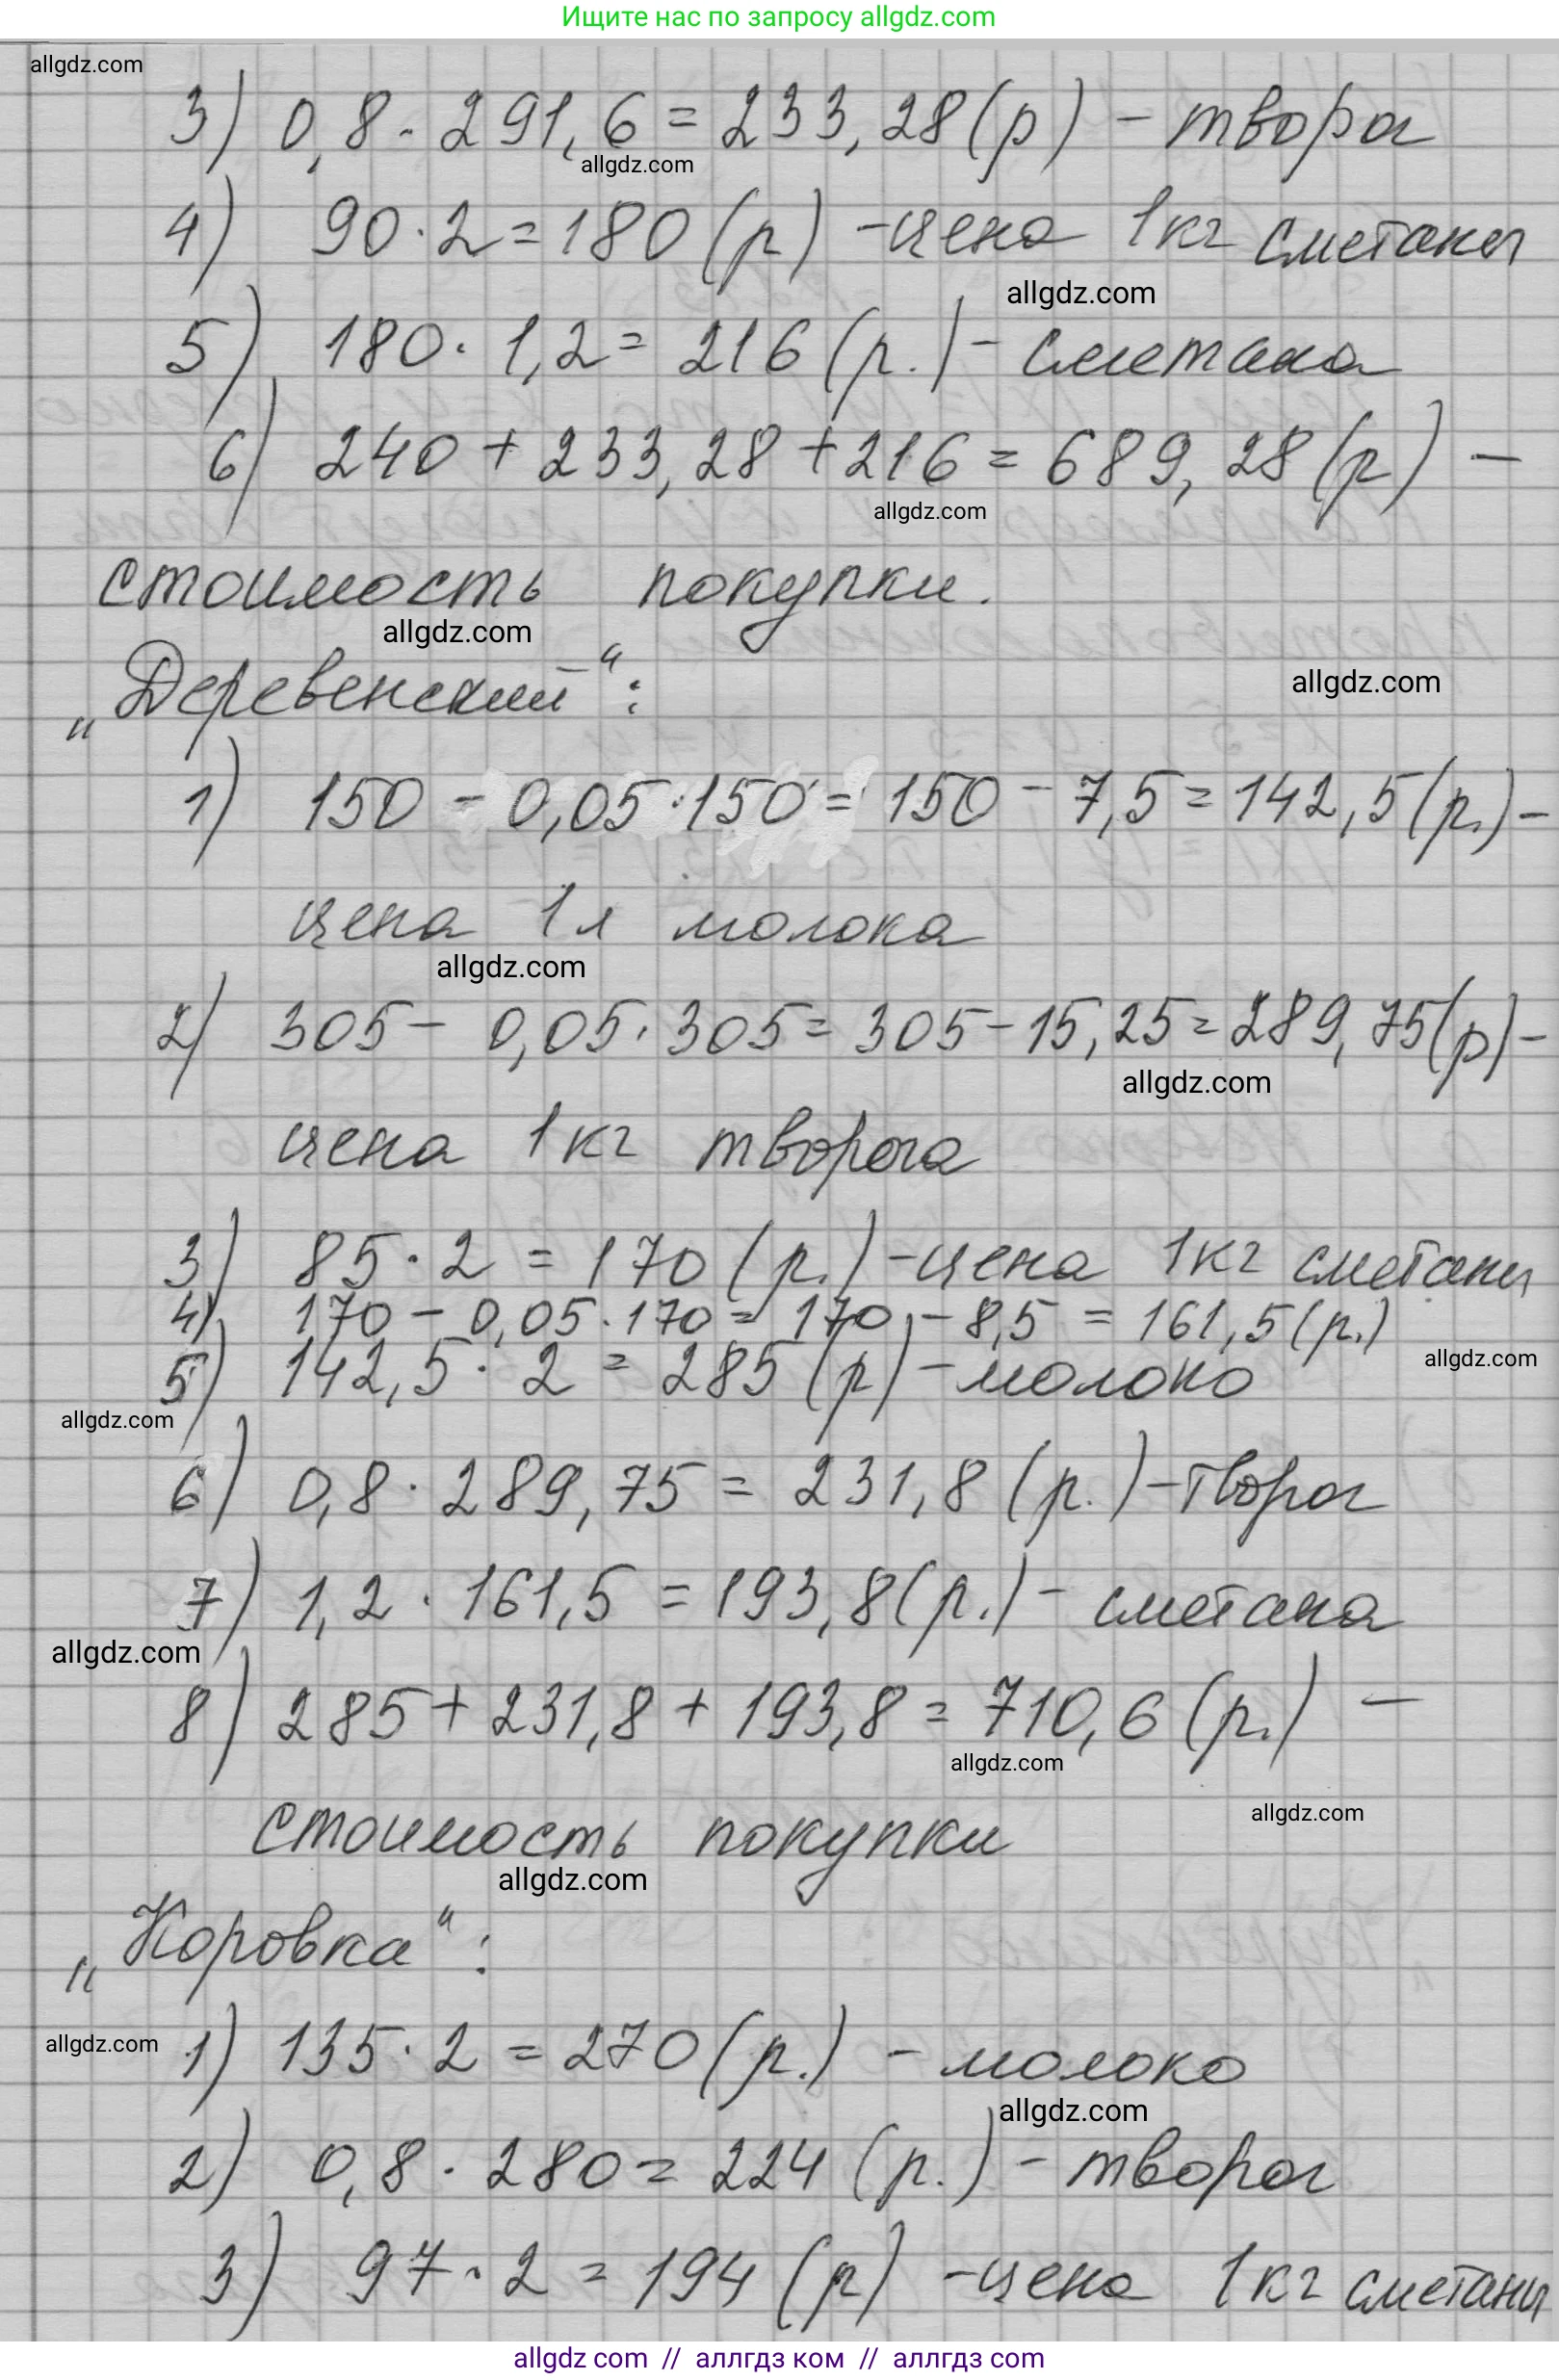 Ищите нас по запросу allgdz.com
allgdz.com
3) 0,8 · 291,6 = 233,28 (р) - творог
allgdz.com
4) 90 · 2 = 180 (р) - цена 1кг сметаны
allgdz.com
5) 180 · 1,2 = 216 (р.) - сметана
6) 240 + 233,28 + 216 = 689,28 (р) -
allgdz.com
стоимость покупки.
allgdz.com
„Деревенский“:
allgdz.com
1) 150 - 0,05 · 150 = 150 - 7,5 = 142,5 (р.) -
цена 1л молока
allgdz.com
2) 305 - 0,05 · 305 = 305 - 15,25 = 289,75 (р) -
allgdz.com
цена 1кг творога
3) 85 · 2 = 170 (р.) - цена 1кг сметаны
4) 170 - 0,05 · 170 = 170 - 8,5 = 161,5 (р.)
allgdz.com
5) 142,5 · 2 = 285 (р) - молоко
allgdz.com
6) 0,8 · 289,75 = 231,8 (р.) - творог
7) 1,2 · 161,5 = 193,8 (р.) - сметана
allgdz.com
8) 285 + 231,8 + 193,8 = 710,6 (р.) -
allgdz.com
allgdz.com
стоимость покупки
allgdz.com
„Коровка“:
allgdz.com
1) 135 · 2 = 270 (р.) - молоко
allgdz.com
2) 0,8 · 280 = 224 (р.) - творог
3) 97 · 2 = 194 (р) - цена 1кг сметаны
allgdz com // аллгдз ком // аллгдз com